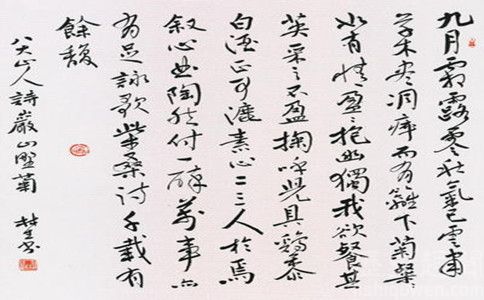 九月霜露零秋氣已雲肅
草木尽凋瘁而有籬下菊粲
有情盈々抱幽獨我欲餐其
英采之不盈掬呼兒具鷄黍
白酒正可漉素心二三人於焉
叙心曲陶然付一醉萬事亦
足詠歌柴桑詩千載有
餘馥
八大山人詩嚴山盟菊